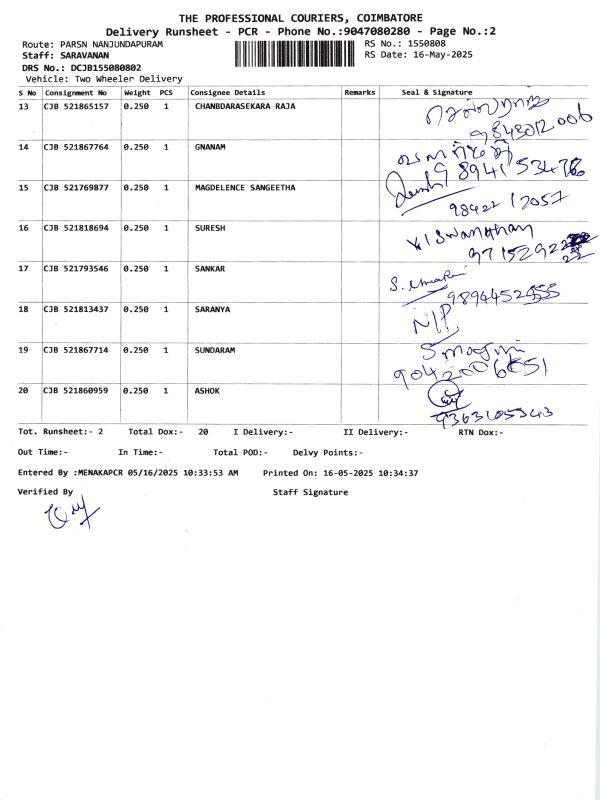 THE PROFESSIONAL COURIERS, COIMBATORE
Delivery Runsheet - PCR - Phone No.:9047080280 - Page No.:2
Route: PARSN NANJUNDAPURAM RS No.: 1550808
Staff: SARAVANAN RS Date: 16-May-2025
DRS No.: DCJB155080802
Vehicle: Two Wheeler Delivery
S No Consignment No Weight PCS Consignee Details Remarks Seal & Signature
13 CJB 521865157 0.250 1 CHANBDARASEKARA RAJA
9843012006
14 CJB 521867764 0.250 1 GNANAM
15 CJB 521769877 0.250 1 MAGDELENCE SANGEETHA
98422 12057
16 CJB 521818694 0.250 1 SURESH
Viswanathan
17 CJB 521793546 0.250 1 SANKAR
18 CJB 521813437 0.250 1 SARANYA
N/P
19 CJB 521867714 0.250 1 SUNDARAM
20 CJB 521860959 0.250 1 ASHOK
9363105343
Tot. Runsheet:- 2 Total Dox:- 20 I Delivery:- II Delivery:- RTN Dox:-
Out Time:- In Time:- Total POD:- Delvy Points:-
Entered By :MENAKAPCR 05/16/2025 10:33:53 AM Printed On: 16-05-2025 10:34:37
Verified By Staff Signature